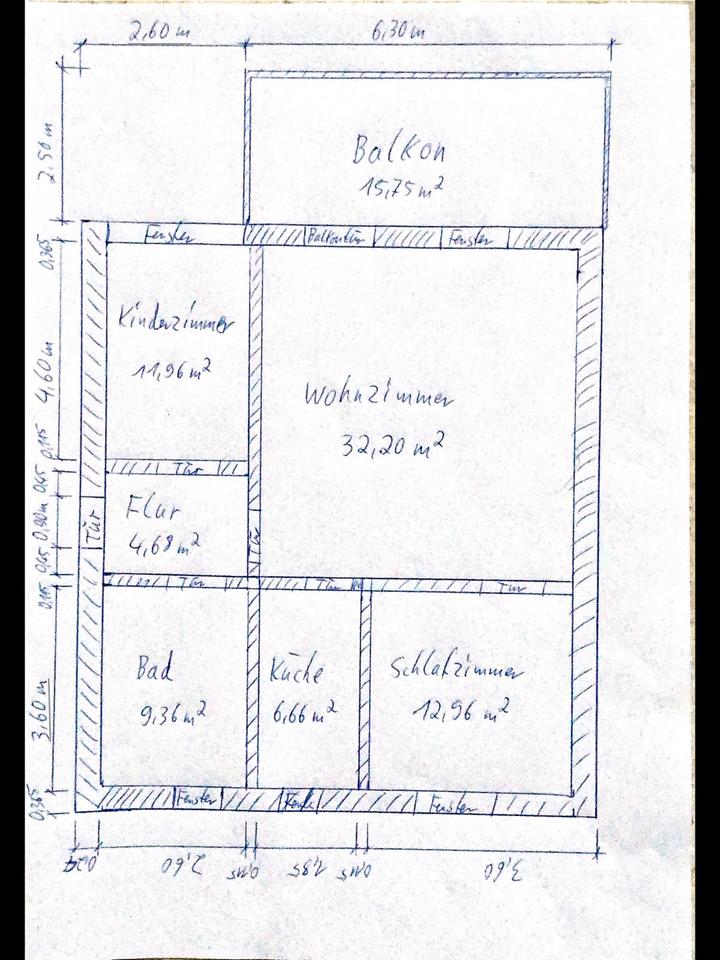 2,60 m
6,30 m
2.50 m
Balkon
15,75 m²
Fenster
Balkontür
Fenster
0,365
Kinderzimmer
11,96 m²
4,60 m
Wohnzimmer
32,20 m²
0,115
Tür
0,45
Flur
4,68 m²
Tür
0,90 m
Tür
0,45
0,115
Tür
Tür
Tür
Bad
9,36 m²
Küche
6,66 m²
Schlafzimmer
12,96 m²
3,60 m
0,365
Fenster
Fenster
0,24
2,60
0,115
1,85
0,115
3,60